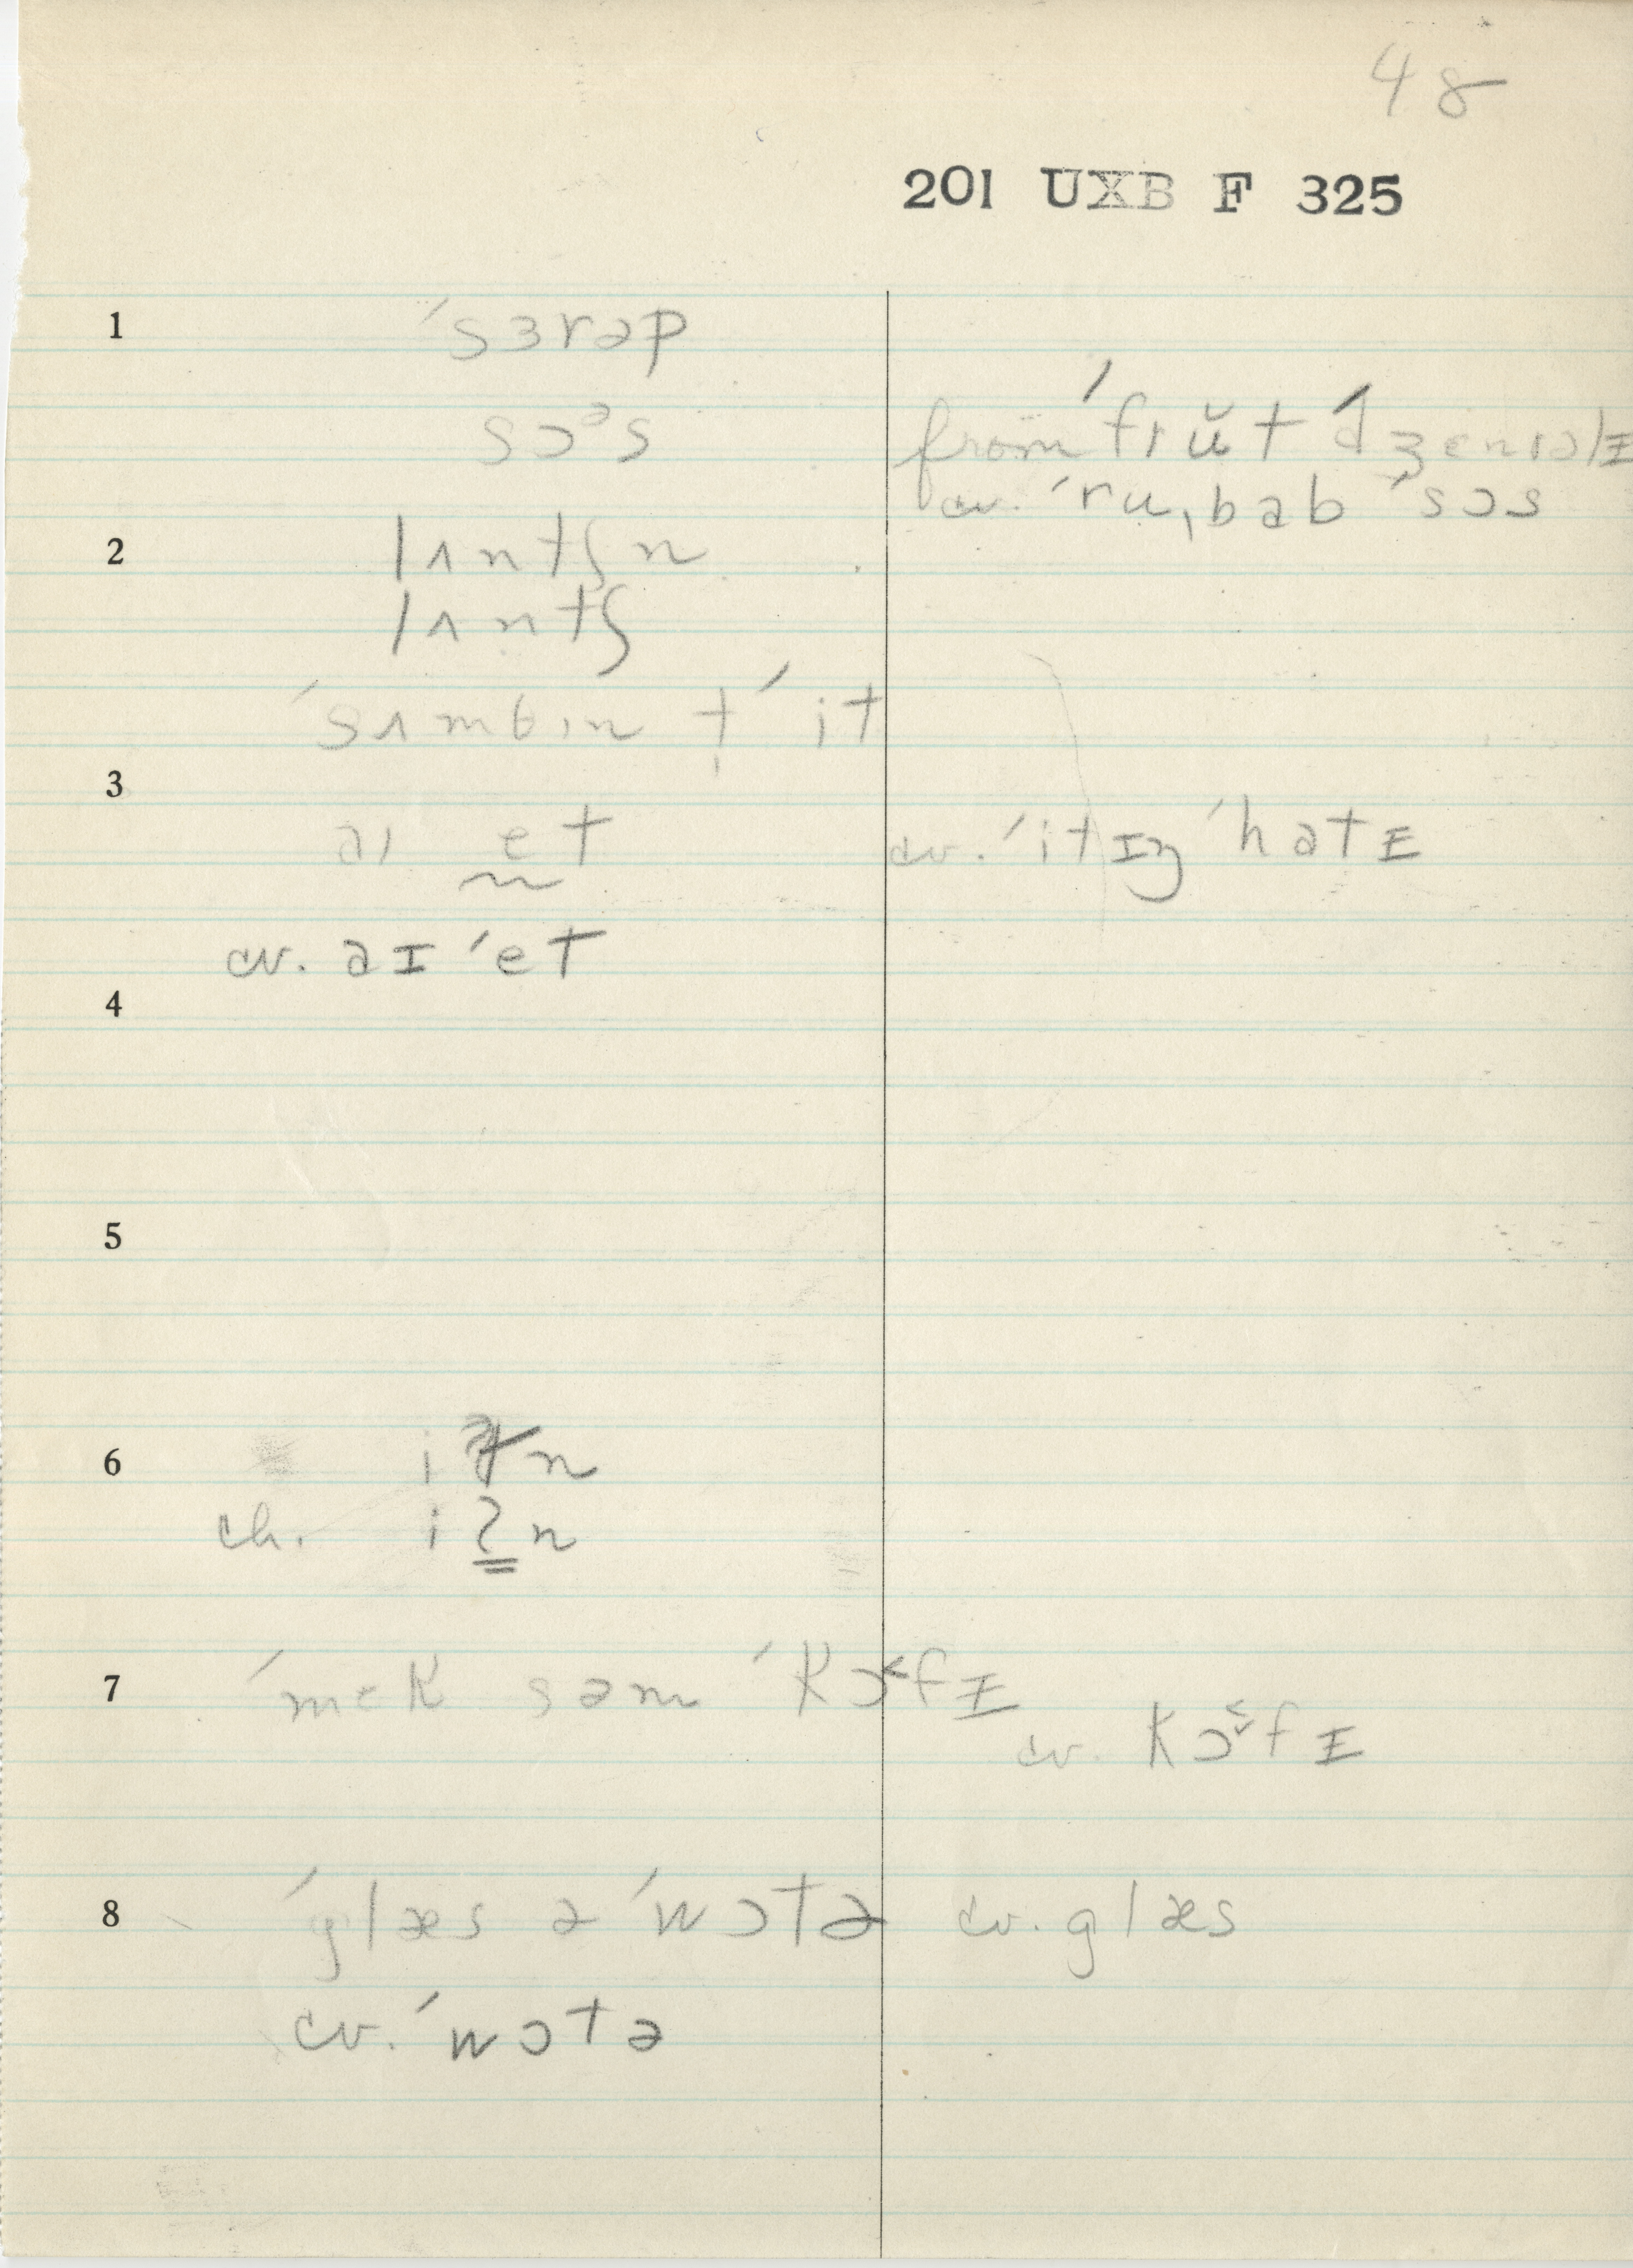 48
201 UXB F 325
1 ˈsɜrəp
sɔᵊs
from ˈfrŭt
cv. ˈruˌbab ˈsɔs
2 lʌntʃn
lʌntʃ
ˈsʌmbɪn t ˈit
3
aɪ et cv. ˈitɪŋ ˈhatɪ
cv. aɪ ˈet
4
5
6 i n
ch. iʔn
7 ˈmek səm ˈkɔ˂fɪ
cv. kɔ˂̬fɪ
8 ˈglæs ə ˈwɔtə cv. glæs
cv. ˈwɔtə